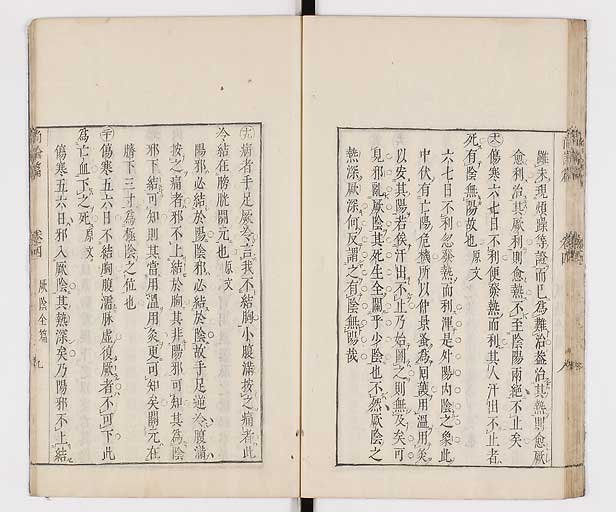 雖未現煩躁等證而已為難治葢治其熱則愈厥
愈利治其厥利則愈熱不至陰陽兩絕不止矣
傷寒六七日不利便發熱而利其人汗出不止者
死有陰無陽故也原文
六七日不利忽發熱而利渾是外陽內陰之象此
中伏有亡陽危機所以仲景蚤為回護用溫用灸
以安其陽若俟汗出不止乃始圖之則無及矣可
見邪亂厥陰其死生全關乎少陰也不然厥陰之
熱深厥深何反謂之有陰無陽哉
病者手足厥冷言我不結胸小腹滿按之痛者此
冷結在膀胱關元也原文
陽邪必結於陽陰邪必結於陰故手足逆冷腹滿
按之痛者邪不上結於胸其非陽邪可知其為陰
邪下結可知則其當用溫用灸更可知矣關元在
臍下三寸為極陰之位也
傷寒五六日不結胸腹濡脈虛復厥者不可下此
為亡血下之死原文
傷寒五六日邪入厥陰其熱深矣乃陽邪不上結
尚論篇
卷四
厥陰全篇
九